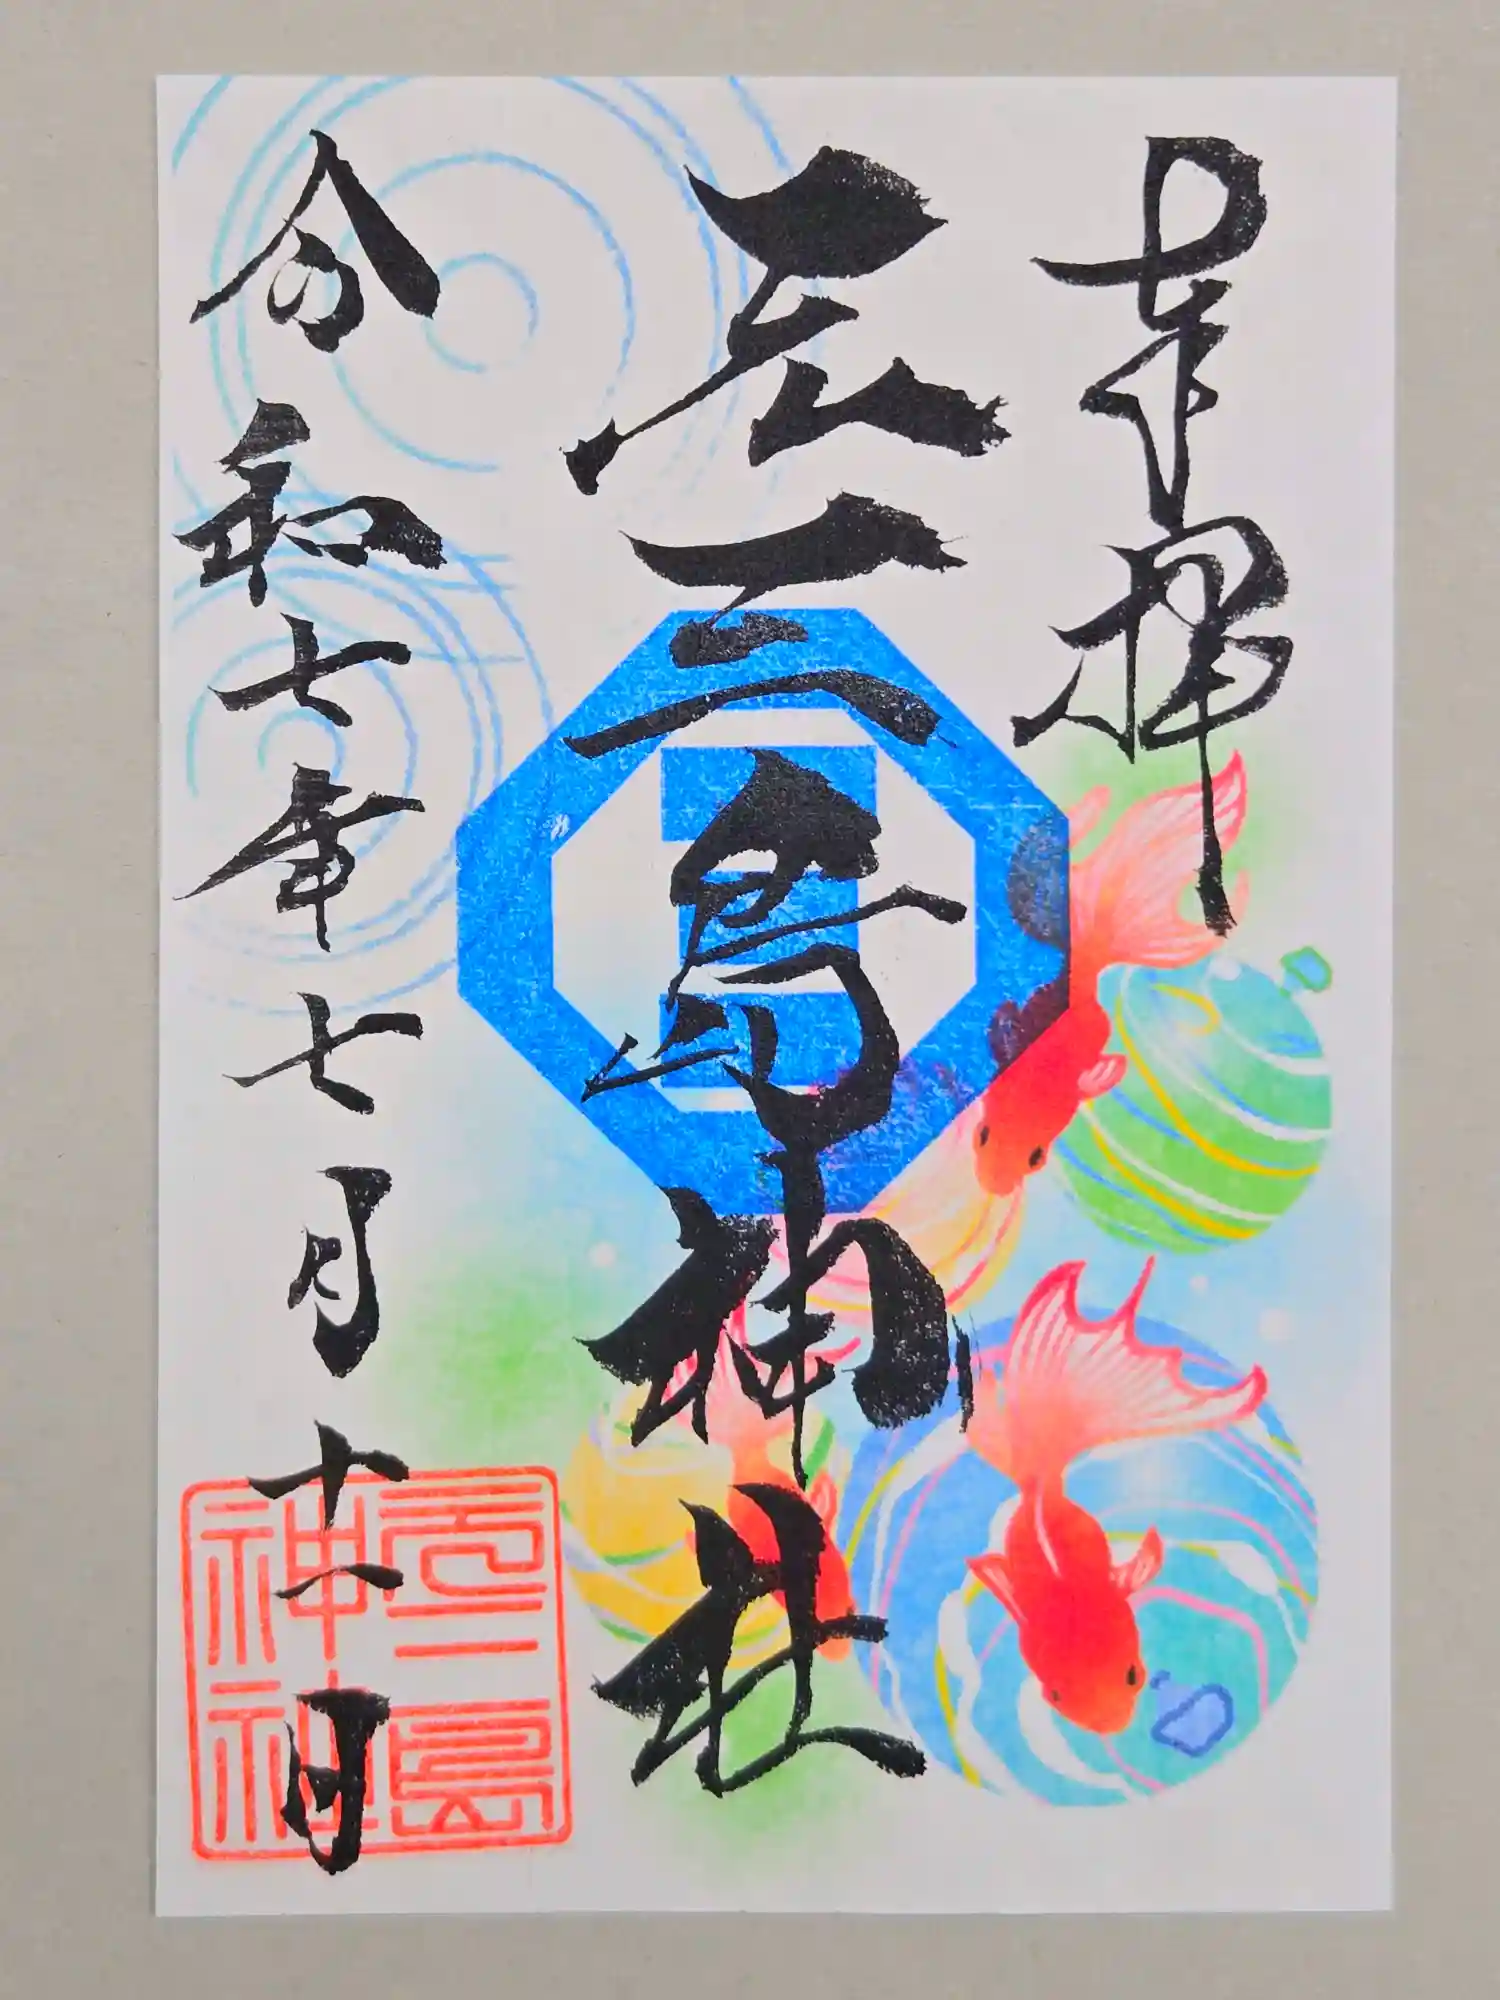 奉拝
元三島神社
令和七年七月十一日
元三島
神社